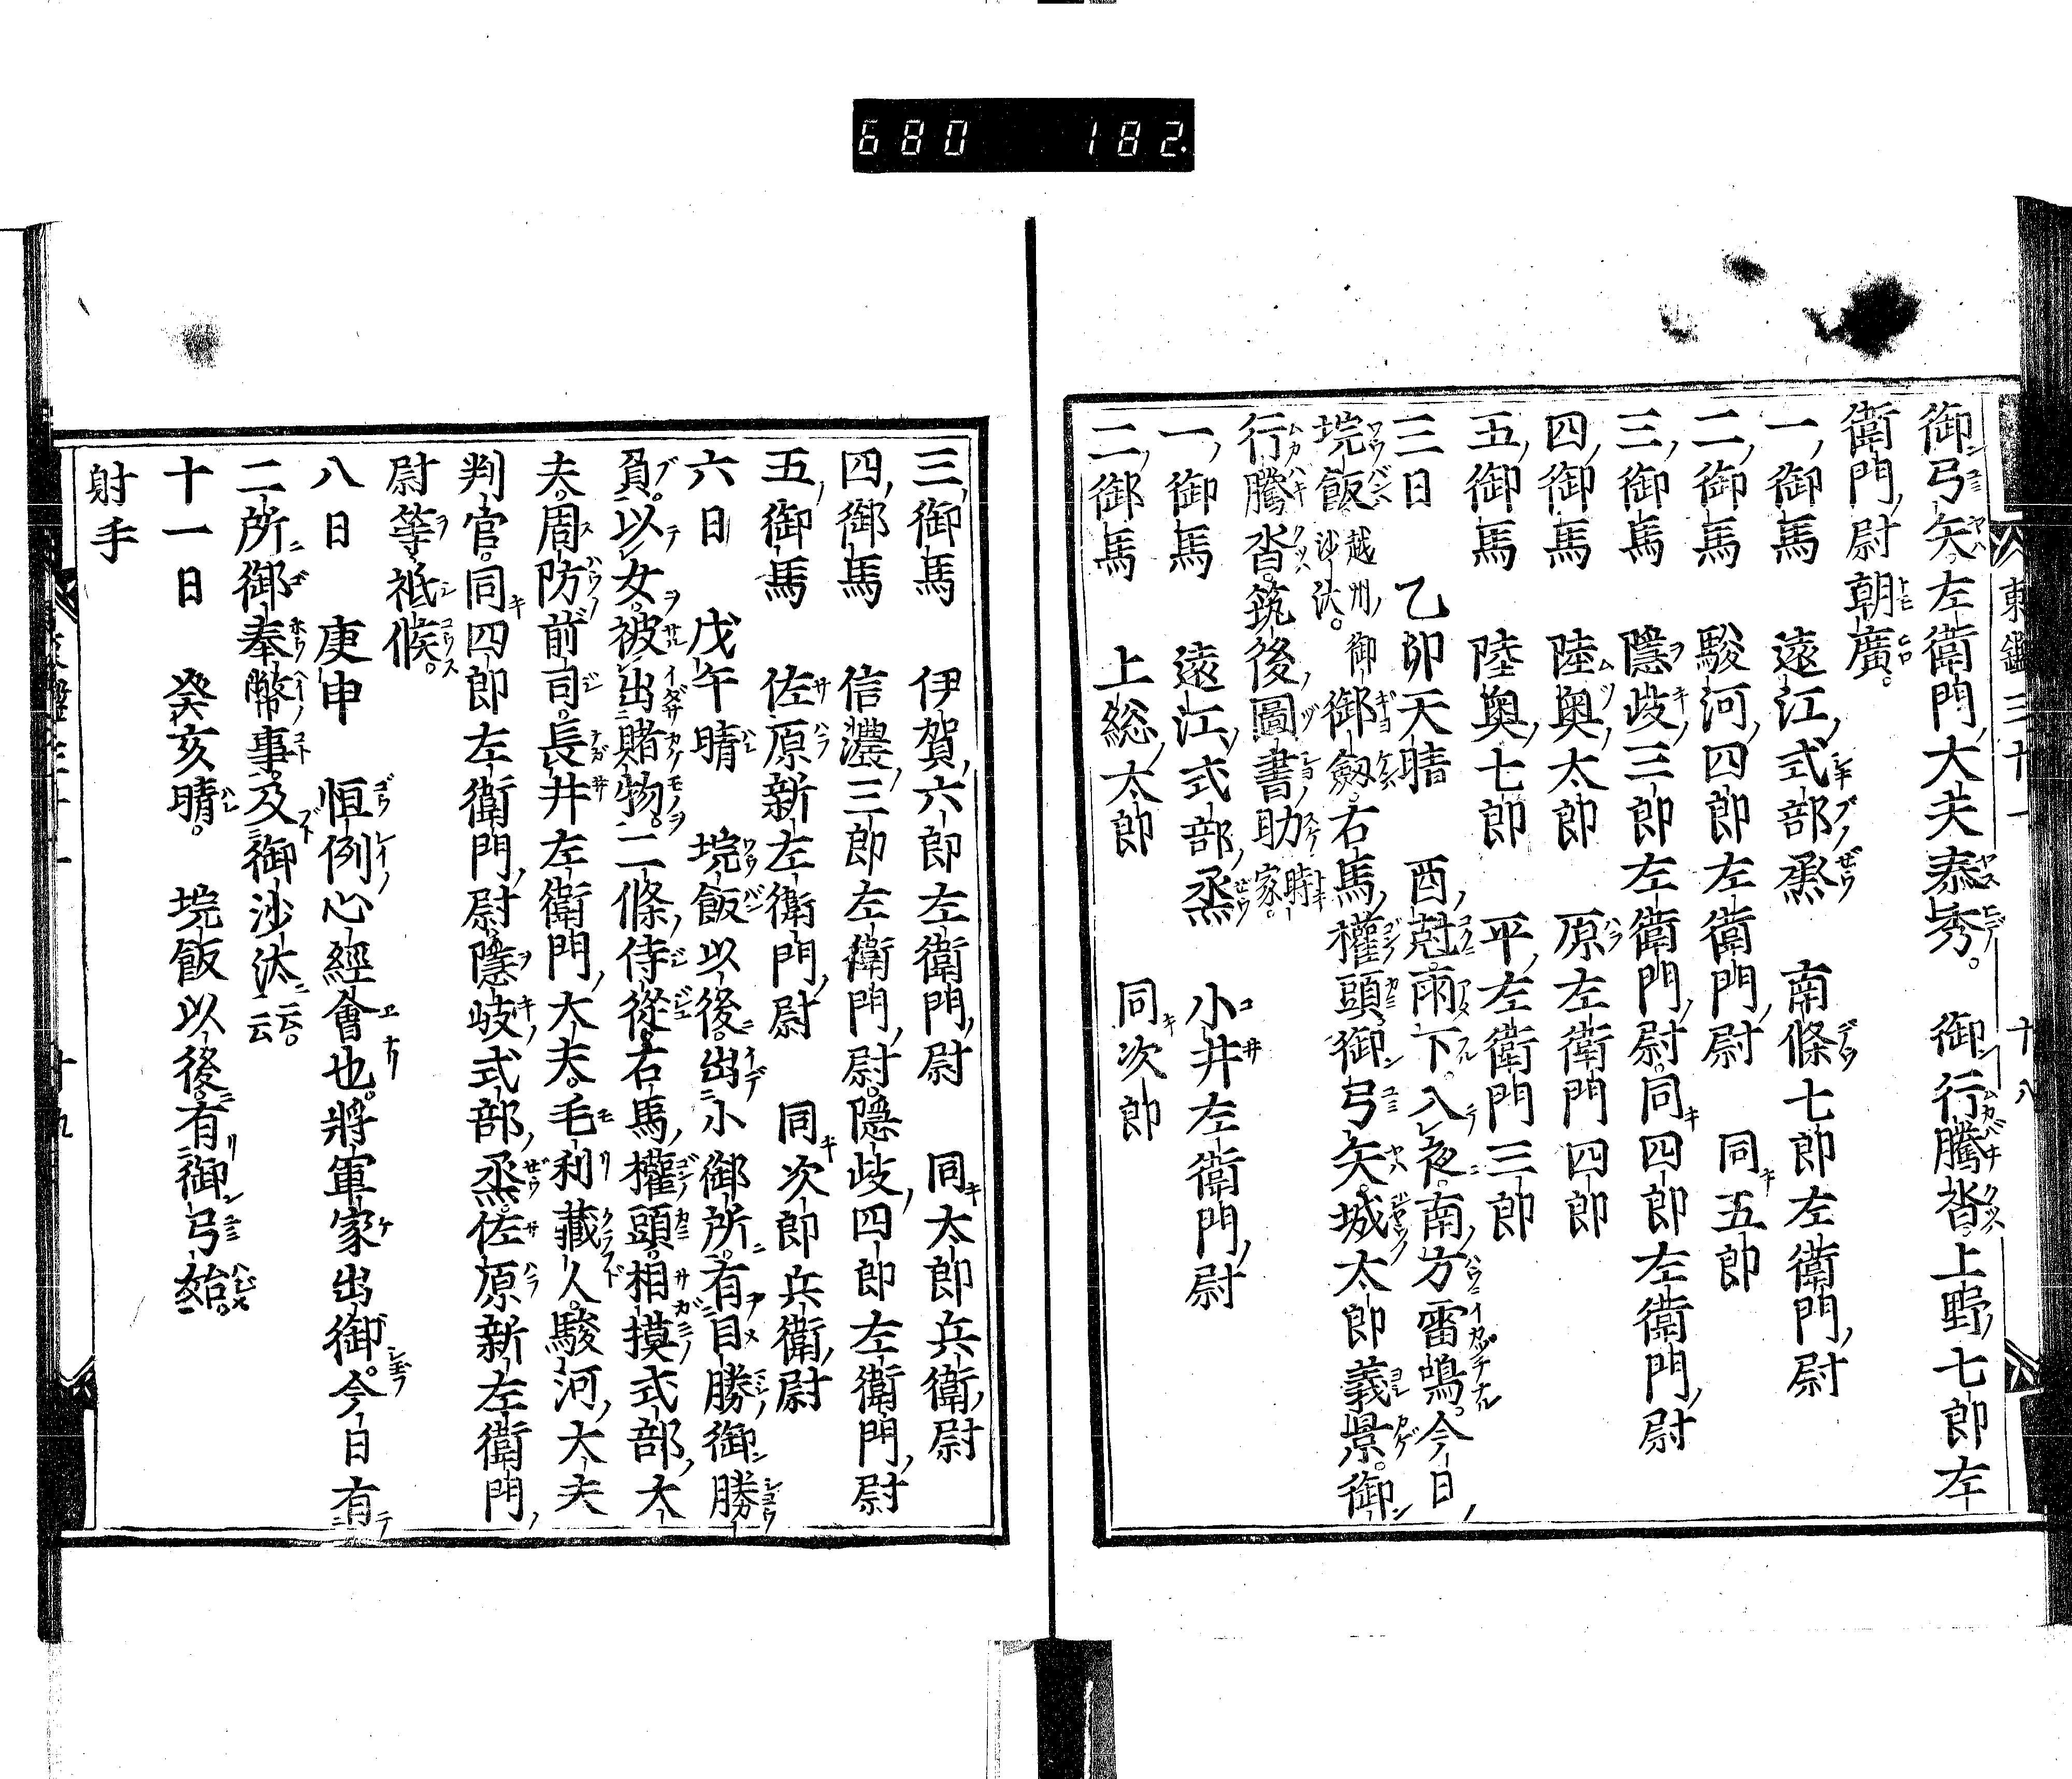 680 182.
東鑑三十一 十八
御弓矢。左衛門大夫泰秀。 御行騰沓。上野七郎左
衛門尉朝廣。
一御馬 遠江式部烝 南條七郎左衛門尉
二御馬 駿河四郎左衛門尉 同五郎
三御馬 隱歧三郎左衛門尉。同四郎左衛門尉
四御馬 陸奥太郎 原左衛門四郎
五御馬 陸奥七郎 平左衛門三郎
三日 乙卯天晴 酉尅。雨下。入夜。南方雷鳴。今日
埦飯越州御沙汰。御劔。右馬權頭。御弓矢。城太郎義景。御
行騰沓。筑後圖書助時家。
一御馬 遠江式部烝 小井左衛門尉
二御馬 上総太郎 同次郎
三御馬 伊賀六郎左衛門尉 同太郎兵衛尉
四御馬 信濃三郎左衛門尉。隱歧四郎左衛門尉
五御馬 佐原新左衛門尉 同次郎兵衛尉
六日 戊午晴 埦飯以後。出小御所。有目勝御勝
負。以女被出賭物。二條侍從。右馬權頭。相摸式部大
夫。周防前司。長井左衛門大夫。毛利藏人。駿河大夫
判官。同四郎左衛門尉。隱岐式部烝。佐原新左衛門
尉等祗候。
八日 庚申 恒例心經會也。將軍家出御。今日有
二所御奉幣事。及御沙汰云云。
十一日 癸亥晴。 埦飯以後。有御弓始。
射手